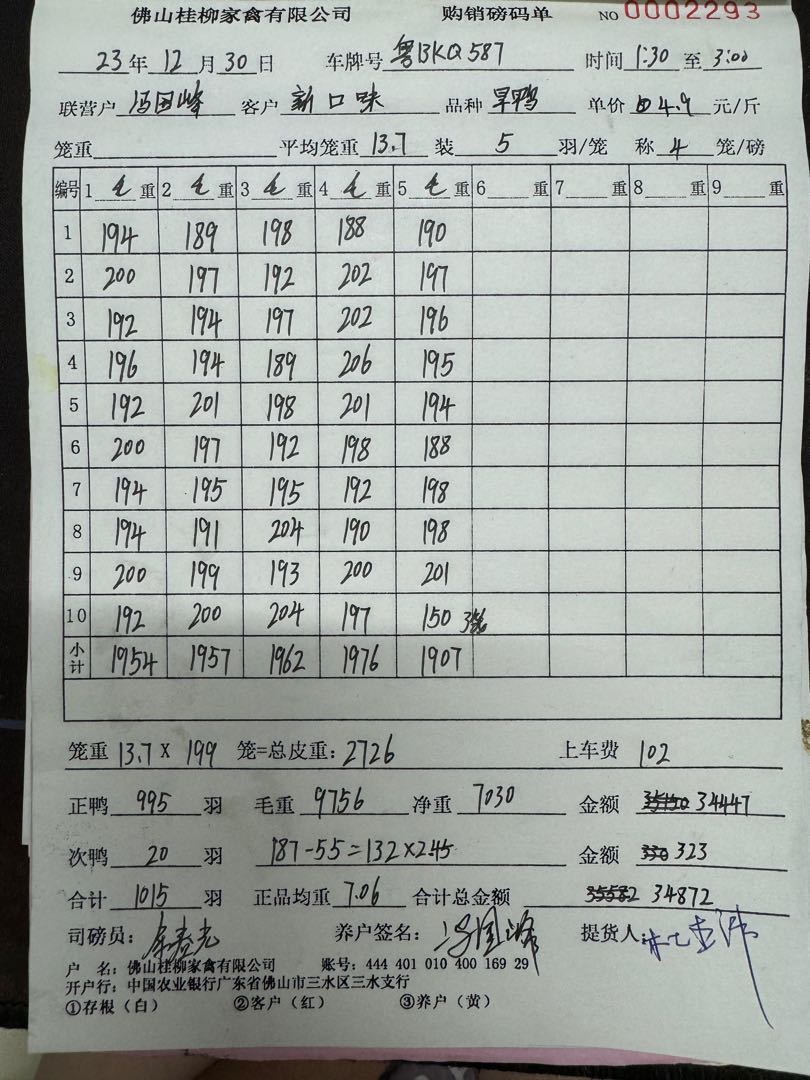 佛山桂柳家禽有限公司 购销磅码单 NO 0002293
23年12月30日 车牌号 粤BKQ587 时间 1:30 至 3:00
联营户 冯国峰 客户 新口味 品种 旱鸭 单价 4.9 元/斤
笼重 平均笼重 13.7 装 5 羽/笼 称 4 笼/磅
编号 1 毛重 2 毛重 3 毛重 4 毛重 5 毛重 6 重 7 重 8 重 9 重
1 194 189 198 188 190
2 200 197 192 202 197
3 192 194 197 202 196
4 196 194 189 206 195
5 192 201 198 201 194
6 200 197 192 198 188
7 194 195 195 192 198
8 194 191 204 190 198
9 200 199 193 200 201
10 192 200 204 197 150 3笼
小计 1954 1957 1962 1976 1907
笼重 13.7 X 199 笼=总皮重: 2726 上车费 102
正鸭 995 羽 毛重 9756 净重 7030 金额 35150 34447
次鸭 20 羽 187-55=132×2.45 金额 330 323
合计 1015 羽 正品均重 7.06 合计总金额 35582 34872
司磅员: 养户签名: 冯国峰 提货人:
户 名: 佛山桂柳家禽有限公司 账号: 444 401 010 400 169 29
开户行: 中国农业银行广东省佛山市三水区三水支行
①存根（白） ②客户（红） ③养户（黄）